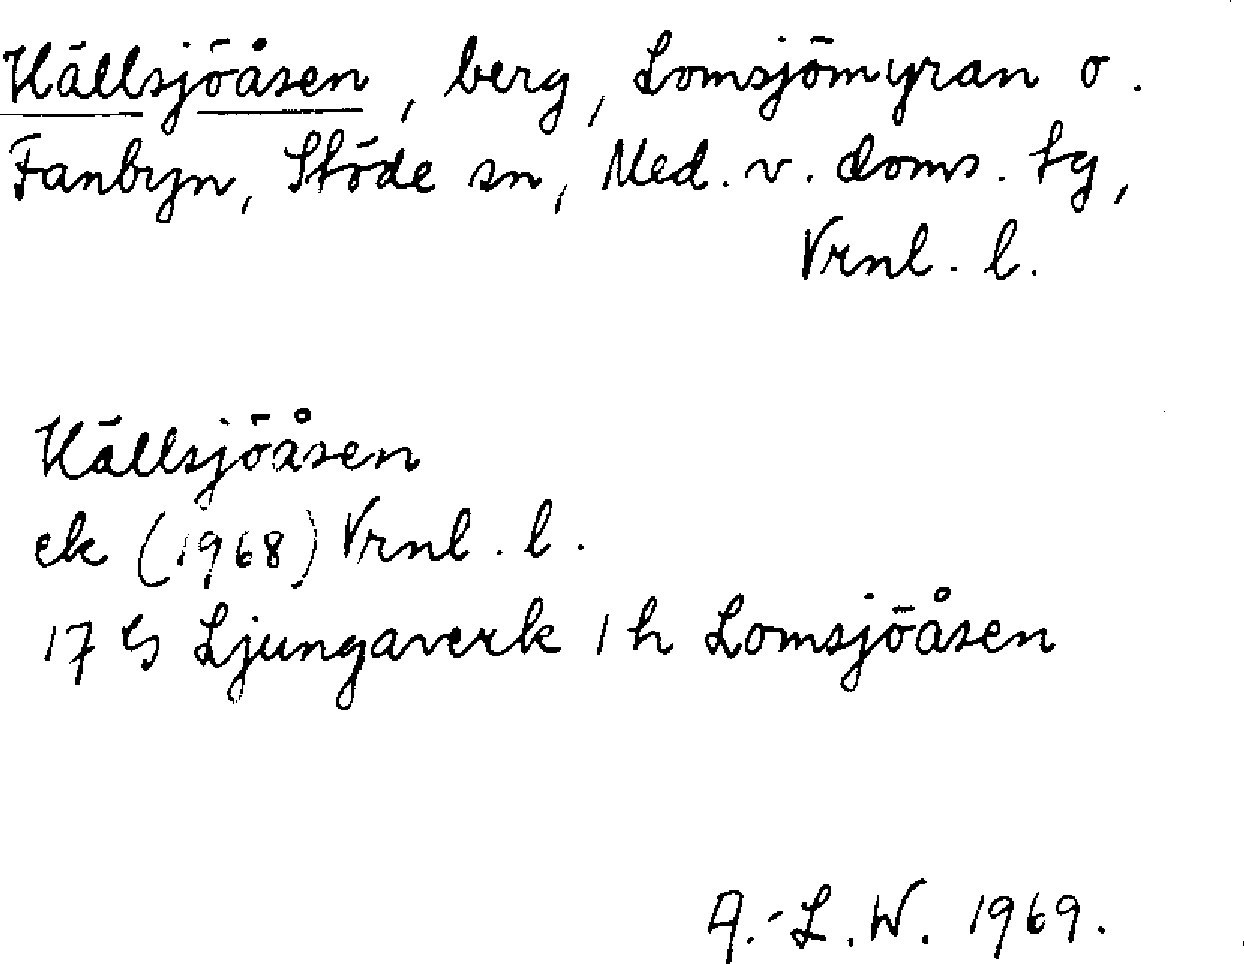 Källsjöåsen, berg, Lomsjömyran o.
Fanbyn, Stöde sn, Med. v. doms. tg,
Vrnl. l.
Källsjöåsen
ek (1968) Vrnl. l.
17 G Ljungaverk 1 h Lomsjöåsen
A.-L. W. 1969.